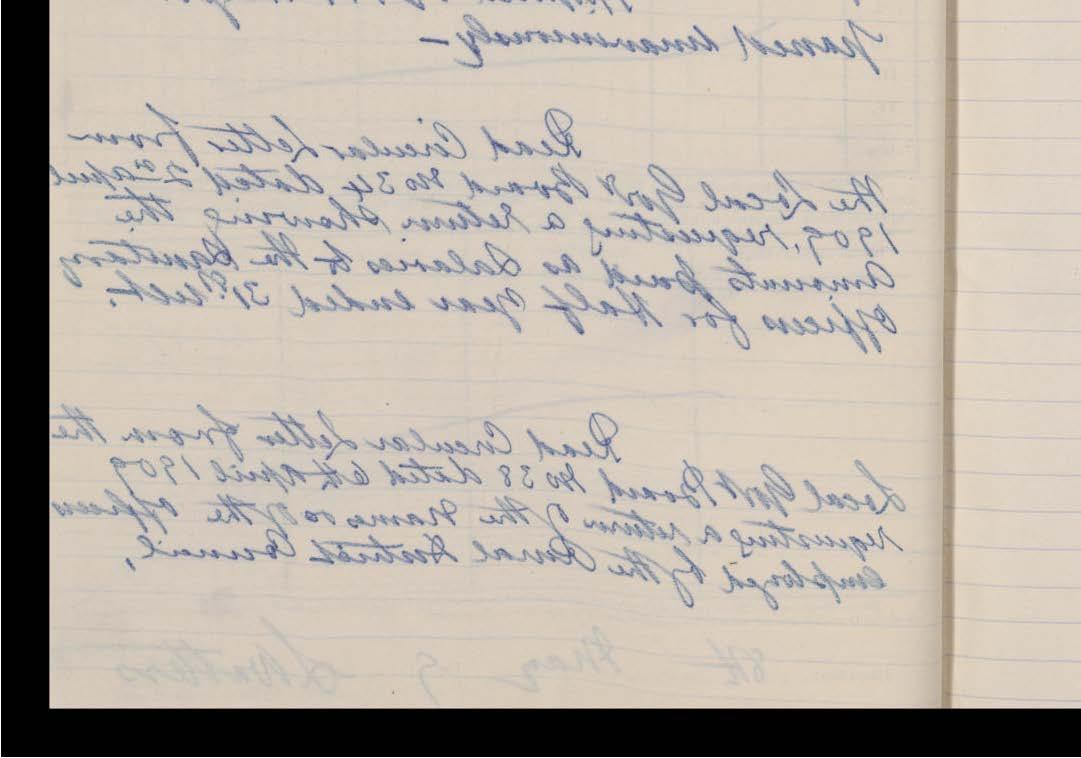 Passed unanimously —
Read Circular Letter from
the Local Gov't Board No 34 dated 2nd April
1909, requesting a return showing the
Amounts paid as Salaries to the Sanitary
Officers for Half Year ended 31st ult.
Read Circular Letter from the
Local Gov't Board No 38 dated 6th April 1909
requesting a return of the names of the officers
employed by the Rural District Council,
8th May 9